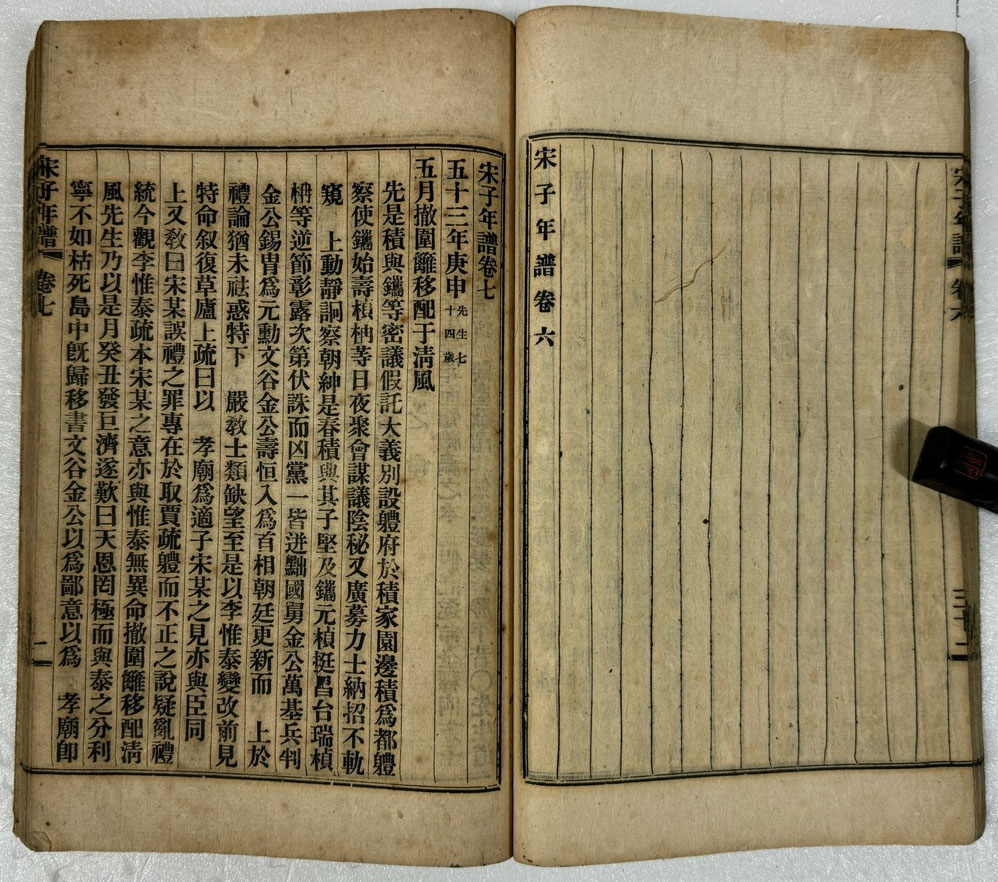 宋子年譜 卷六 三十二
宋子年譜卷六
宋子年譜卷七
五十三年庚申先生七十四歲
五月撤圍籬移配于淸風
先是積與鑴等密議假託大義別設軆府於積家園邊積爲都軆
察使鑴始壽楨柟等日夜聚會謀議陰秘又廣募力士納招不軌
窺 上動靜詗察朝紳是春積與其子堅及鑴元楨挺昌台瑞楨
柟等逆節彰露次第伏誅而凶黨一皆迸黜國舅金公萬基兵判
金公錫胄爲元勳文谷金公壽恒入爲首相朝廷更新而 上於
禮論猶未祛惑特下 嚴敎士類缺望至是以李惟泰變改前見
特命叙復草廬上疏曰以 孝廟爲適子宋某之見亦與臣同
上又敎曰宋某誤禮之罪專在於取賈疏軆而不正之說疑亂禮
統今觀李惟泰疏本宋某之意亦與惟泰無異命撤圍籬移配淸
風先生乃以是月癸丑發巨濟逐歎曰天恩罔極而與泰之分利
寧不如枯死島中旣歸移書文谷金公以爲鄙意以爲 孝廟卽
宋子年譜 卷七 一